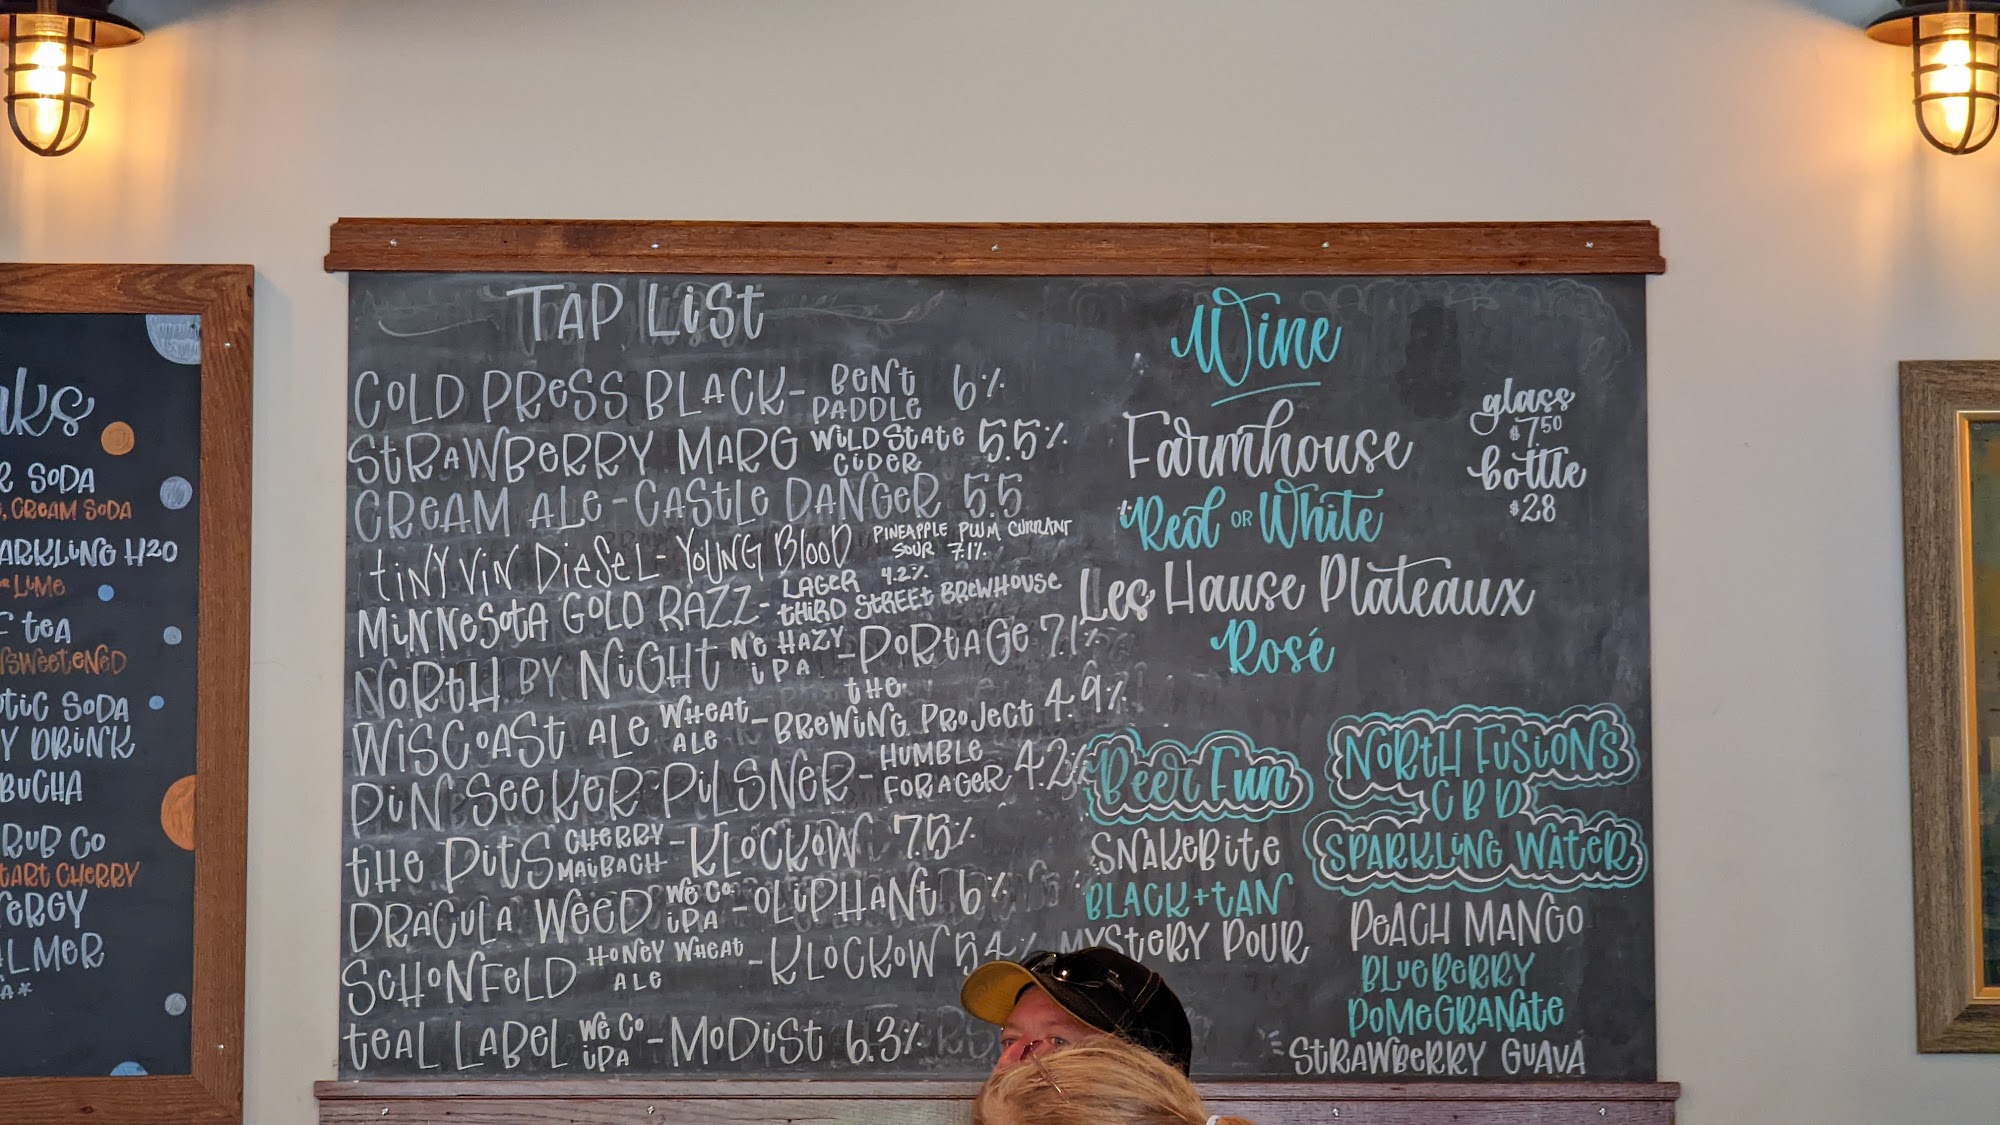 aks
R SODA
, CREAM SODA
ARKLING H2O
LIME
F TEA
NSWEETENED
OTIC SODA
Y DRINK
BUCHA
RUB CO
TART CHERRY
ERGY
ALMER
A*
TAP LIST
COLD PRESS BLACK- BENT PADDLE 6%
STRAWBERRY MARG WILD STATE CIDER 5.5%
CREAM ALE - CASTLE DANGER 5.5
TINY VIN DIESEL - YOUNG BLOOD PINEAPPLE PLUM CURRANT SOUR 7.1%
MINNESOTA GOLD RAZZ- LAGER 4.2% THIRD STREET BREWHOUSE
NORTH BY NIGHT NE HAZY IPA - PORTAGE 7.1%
WISCOAST ALE WHEAT ALE - THE BREWING PROJECT 4.9%
PIN SEEKER PILSNER - HUMBLE FORAGER 4.2%
THE PITS CHERRY MAIBACH - KLOCKOW 7.5%
DRACULA WEED WE CO. IPA - OLIPHANT 6%
SCHONFELD HONEY WHEAT ALE - KLOCKOW 5.4%
TEAL LABEL WE CO IPA - MODIST 6.3%
Wine
glass
$7.50
bottle
$28
Farmhouse
Red OR White
Les Hause Plateaux
Rosé
Beer Fun
SNAKEBITE
BLACK + TAN
MYSTERY POUR
NORTH FUSIONS
CBD
SPARKLING WATER
PEACH MANGO
BLUEBERRY
POMEGRANATE
STRAWBERRY GUAVA